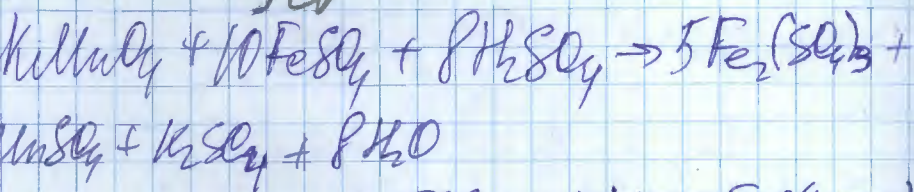 KMnO₄ + 10FeSO₄ + 8H₂SO₄ → 5Fe₂(SO₄)₃ +
MnSO₄ + K₂SO₄ + 8H₂O